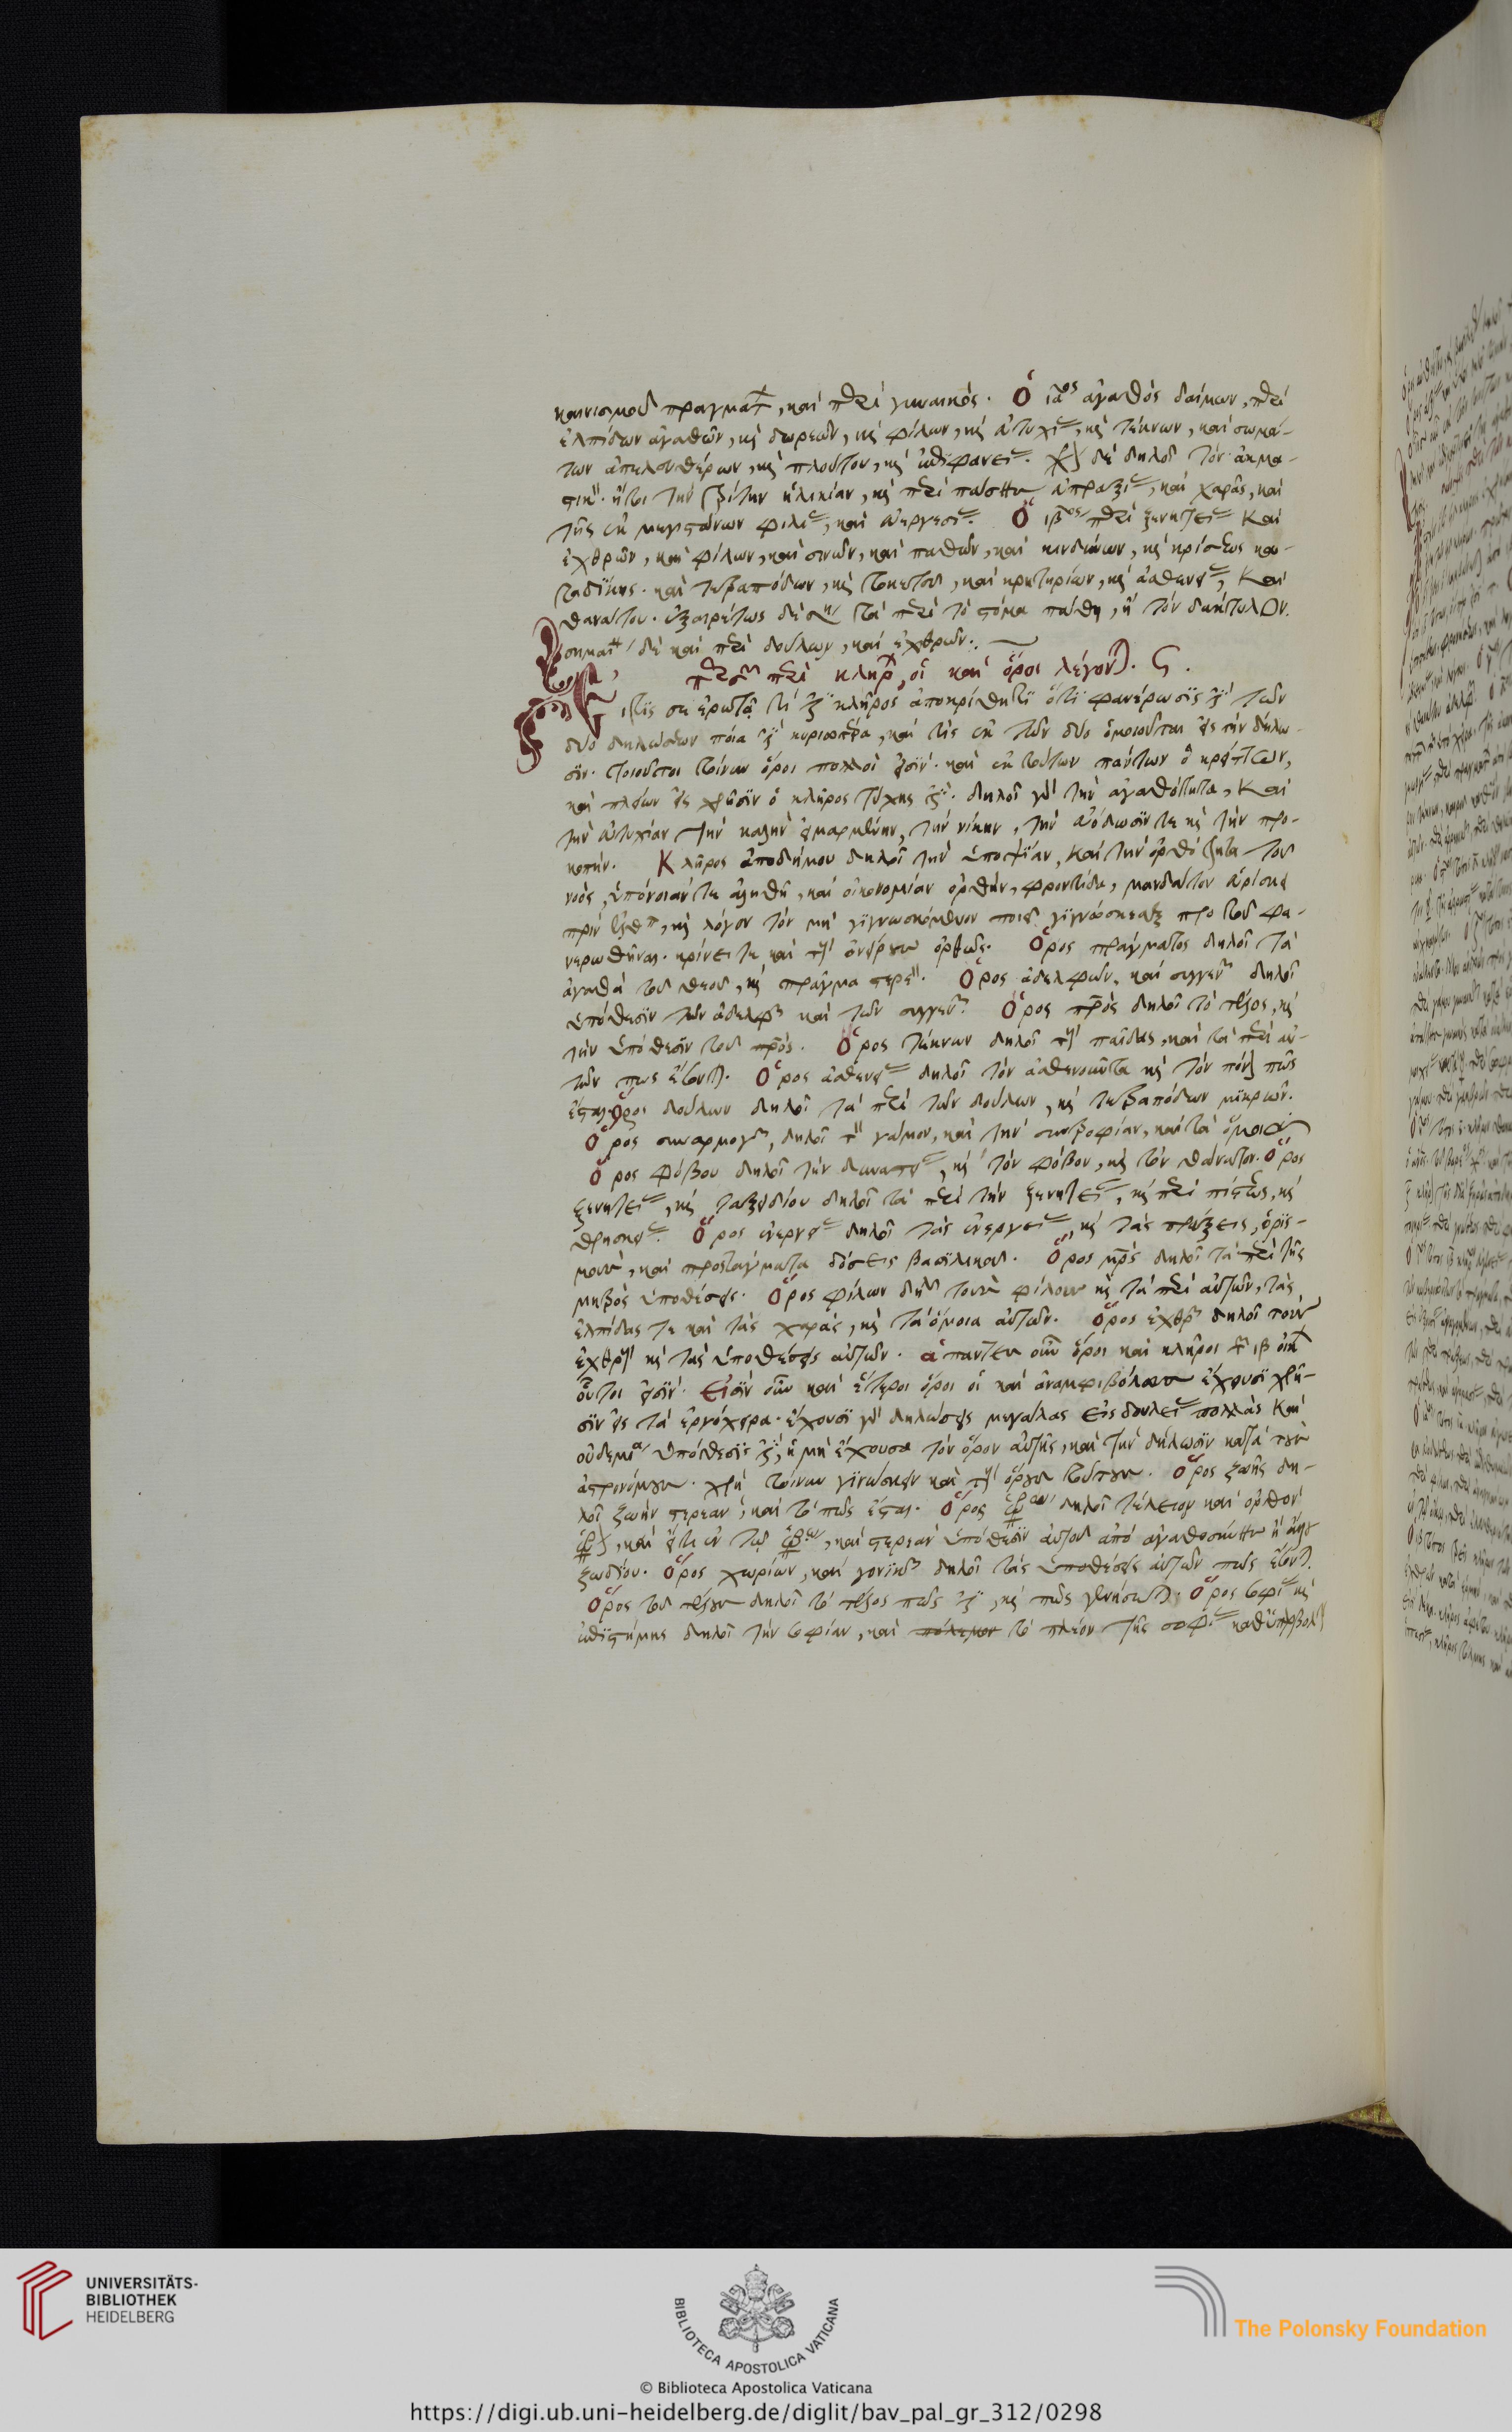 καινισμοῦ πραγμάτ, καὶ περὶ γυναικός. Ὁ ιαος ἀγαθὸς δαίμων, περὶ
ἐλπίδων ἀγαθῶν, καὶ δωρεῶν, καὶ φίλων, καὶ εὐτυχί, καὶ τέκνων, καὶ σωμά-
των ἀπελευθέρων, καὶ πλούτου, καὶ ἐπιφανεί. δὲ δηλοῖ τὸν ἀκμα-
στικ. ἤτοι τὴν τρίτην ἡλικίαν, καὶ περὶ πάσης εὐπραξί, καὶ χαρᾶς, καὶ
τῆς ἐκ μεγιστάνων φιλί, καὶ εὐεργεσί. Ὁ ιβος περὶ ξενητεί καὶ
ἐχθρῶν, καὶ φίλων, καὶ σινῶν, καὶ παθῶν, καὶ κινδύνων, καὶ κρίσεως κα-
ταδίκης. καὶ τετραπόδων, καὶ τοκετοῦ, καὶ κριτηρίων, καὶ ἀσθενεί, καὶ
θανάτου. ἐξαιρέτως δὲ τὰ περὶ τὸ στόμα πάθη, ἢ τὸν δακτυλον.
σημαί δὲ καὶ περὶ δούλων, καὶ ἐχθρῶν:
περὶ κλήρ, οἳ καὶ ὅροι λέγοντ. ϛ.
τίς σε ἐρωτᾷ τί ἐστι κλῆρος ἀποκρίθητι ὅτι φανέρωσις ἐστι τῶν
δύο δηλώσεων ποία ἐστὶ κυριωτέρα, καὶ τίς ἐκ τῶν δύο ὁμοιοῦται εἰς τὴν δήλω-
σιν. τοιοῦτοι τοίνυν ὅροι πολλοί εἰσιν. καὶ ἐκ τούτων πάντων ὁ κρείττων,
καὶ πλείων εἰς χρῆσιν ὁ κλῆρος τύχης ἐστί. δηλοῖ γὰρ τὴν ἀγαθότητα, καὶ
τὴν εὐτυχίαν τὴν καλὴν εἱμαρμένην, τὴν νίκην, τὴν εὐόδωσίν τε καὶ τὴν προ-
κοπήν. Κλῆρος ἀποδήμου δηλοῖ τὴν ὑποψίαν, καὶ τὴν ὀρθότητα τοῦ
νοός, ὑπόνοιάν τε ἀληθῆ, καὶ οἰκονομίαν ὀρθὴν, φροντίδα, μανδάτον εὑρίσκει
πρὶν, καὶ λόγον τὸν μὴ γιγνωσκόμενον ποιεῖ γιγνώσκεσθαι πρὸ τοῦ φα-
νερωθῆναι. κρίνει τε καὶ ὀρθῶς. Ὅρος πράγματος δηλοῖ τὰ
ἀγαθὰ τοῦ θεοῦ, καὶ πρᾶγμα στερε. Ὅρος ἀδελφῶν, καὶ συγγεν δηλοῖ
ὑπόθεσιν τῶν ἀδελφ καὶ τῶν συγγεν. Ὅρος πρὸς δηλοῖ τὸ τέλος, καὶ
τὴν ὑπόθεσιν τοῦ πρός. Ὅρος τέκνων δηλοῖ παῖδας, καὶ τὰ περὶ αὐ-
τῶν πως ἔσοντ. Ὅρος ἀσθενεί δηλοῖ τὸν ἀσθενοῦντα καὶ τὸν πόν πῶς
ἔσται. Ὅρος δούλων δηλοῖ τὰ περὶ τῶν δούλων, καὶ τετραπόδων μικρῶν.
Ὅρος συναρμογ, δηλοῖ γάμον, καὶ τὴν συντροφίαν, καὶ τὰ ὅμοια
Ὅρος φόβου δηλοῖ τὴν δυναστεί, καὶ τὸν φόβον, καὶ τὸν θάνατον. Ὅρος
ξενητεί, καὶ ταξειδίου δηλοῖ τὰ περὶ τὴν ξενητεί, καὶ περὶ πίστεως, καὶ
θρησκεί. Ὅρος ἐνεργεί δηλοῖ τὰς ἐνεργεί, καὶ τὰς πράξεις, ὁρισ-
μοὺς, καὶ προστάγματα δόσεις βασιλικάς. Ὅρος μρς δηλοῖ τὰ περὶ τῆς
μητρὸς ὑποθέσεις. Ὅρος φίλων δηλ τοὺς φίλους καὶ τὰ περὶ αὐτῶν, τὰς
ἐλπίδας τε καὶ τὰς χαράς, καὶ τὰ ὅμοια αὐτῶν. Ὅρος ἐχθρ δηλοῖ τοὺς
ἐχθρ καὶ τὰς ὑποθέσεις αὐτῶν. ἅπαντες οὖν ὅροι καὶ κλῆροι τῶν ιβ οἴκ
οὗτοι εἰσίν. Εἰσὶν οὖν καὶ ἕτεροι ὅροι οἳ καὶ ἀναμφιβόλως ἔχουσι χρῆ-
σιν εἰς τὰ ἐργόχειρα. ἔχουσι γὰρ δηλώσεις μεγάλας εἰς δουλεί πολλὰς καὶ
οὐδεμία ὑπόθεσις ἐστι, ἡ μὴ ἔχουσα τὸν ὅρον αὐτῆς, καὶ τὴν δήλωσιν κατὰ τοὺς
ἀστρονόμους. χρὴ τοίνυν γινώσκειν καὶ ὅρους τούτους. Ὅρος ζωῆς δη-
λοῖ ζωὴν στερεάν, καὶ τὸ πῶς ἔσται. Ὅρος δηλοῖ τέλειον καὶ ὀρθὸν
καὶ στερεὰν ὑπόθεσιν αὐτοῦ ἀπὸ ἀγαθοσύνης ἢ
ζωδίου. Ὅρος χωρίων, καὶ γονικ δηλοῖ τὰς ὑποθέσεις αὐτῶν πῶς ἔσοντ.
Ὅρος τοῦ τέλους δηλοῖ τὸ τέλος πῶς ἐστι, καὶ πῶς γενήσεται. Ὅρος σοφί καὶ
ἐπιστήμης δηλοῖ τὴν σοφίαν, καὶ πόλεμον τὸ πλέον τῆς σοφί καθ' ὑπερβολ
UNIVERSITÄTS-
BIBLIOTHEK
HEIDELBERG
BIBLIOTECA APOSTOLICA VATICANA
© Biblioteca Apostolica Vaticana
The Polonsky Foundation
https://digi.ub.uni-heidelberg.de/diglit/bav_pal_gr_312/0298